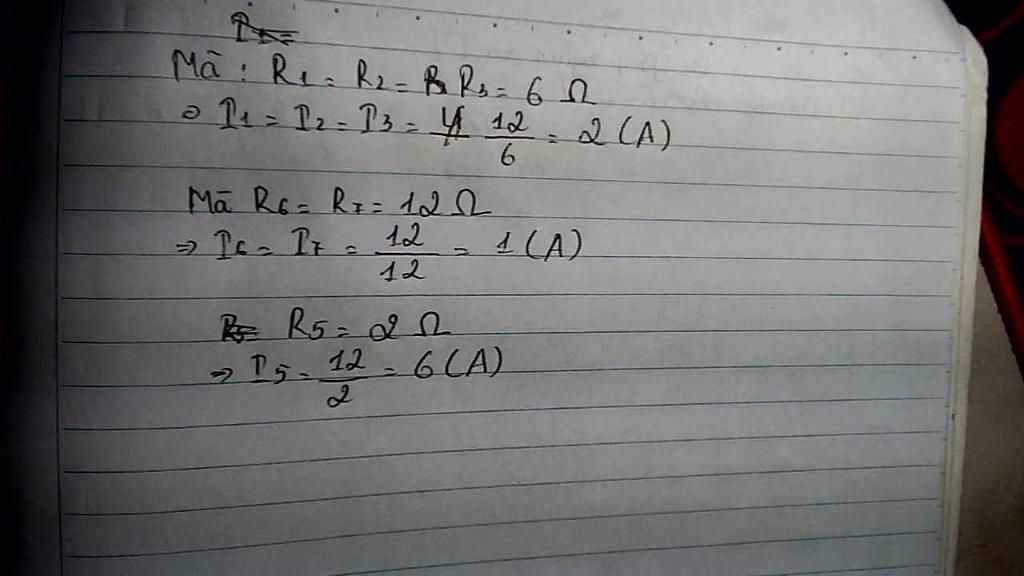 Mã : R1 = R2 = R3 = 6 Ω
⇒ I1 = I2 = I3 = 12/6 = 2 (A)
Mã R6 = R7 = 12 Ω
⇒ I6 = I7 = 12/12 = 1 (A)
R5 = 2 Ω
⇒ I5 = 12/2 = 6 (A)